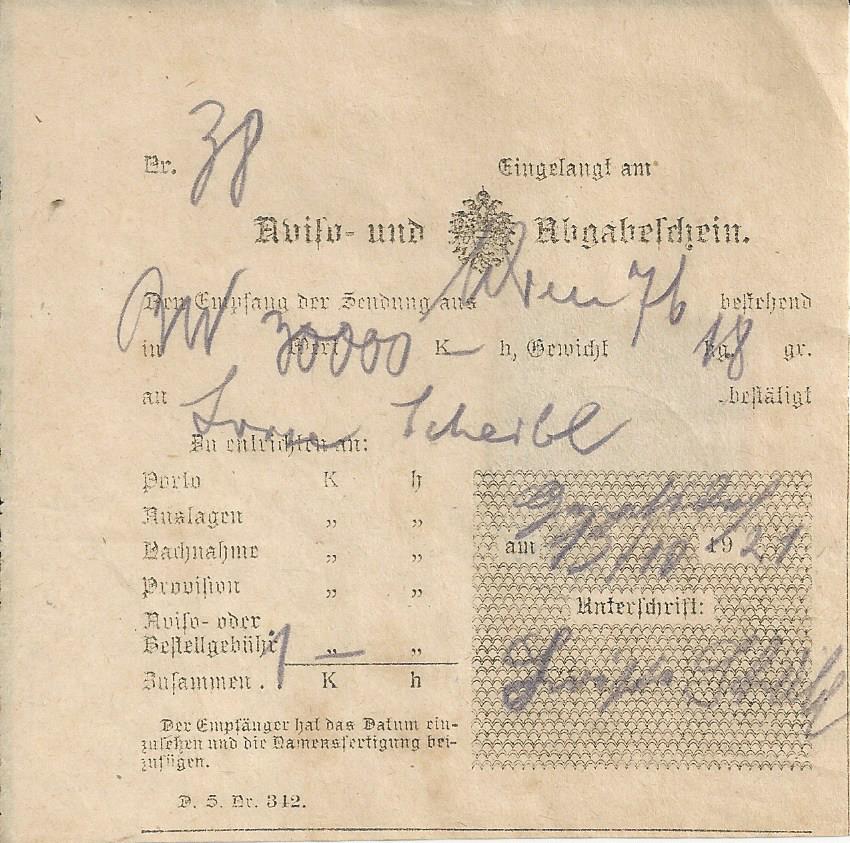 Nr. 38 Eingelangt am
Aviso- und Abgabeschein.
Den Empfang der Sendung aus Wien 76 bestehend
in Wert 30000 K — h, Gewicht kg. 18 gr.
an Scheibl bestätigt
Zu entrichten an:
Porto K h
Auslagen „ „
Nachnahme „ „
Provision „ „
Aviso- oder
Bestellgebühr 1 „ — „
Zusammen . . K h
am /10 1921
Unterschrift:
Der Empfänger hat das Datum ein-
zusetzen und die Namensfertigung bei-
zufügen.
D. S. Nr. 342.